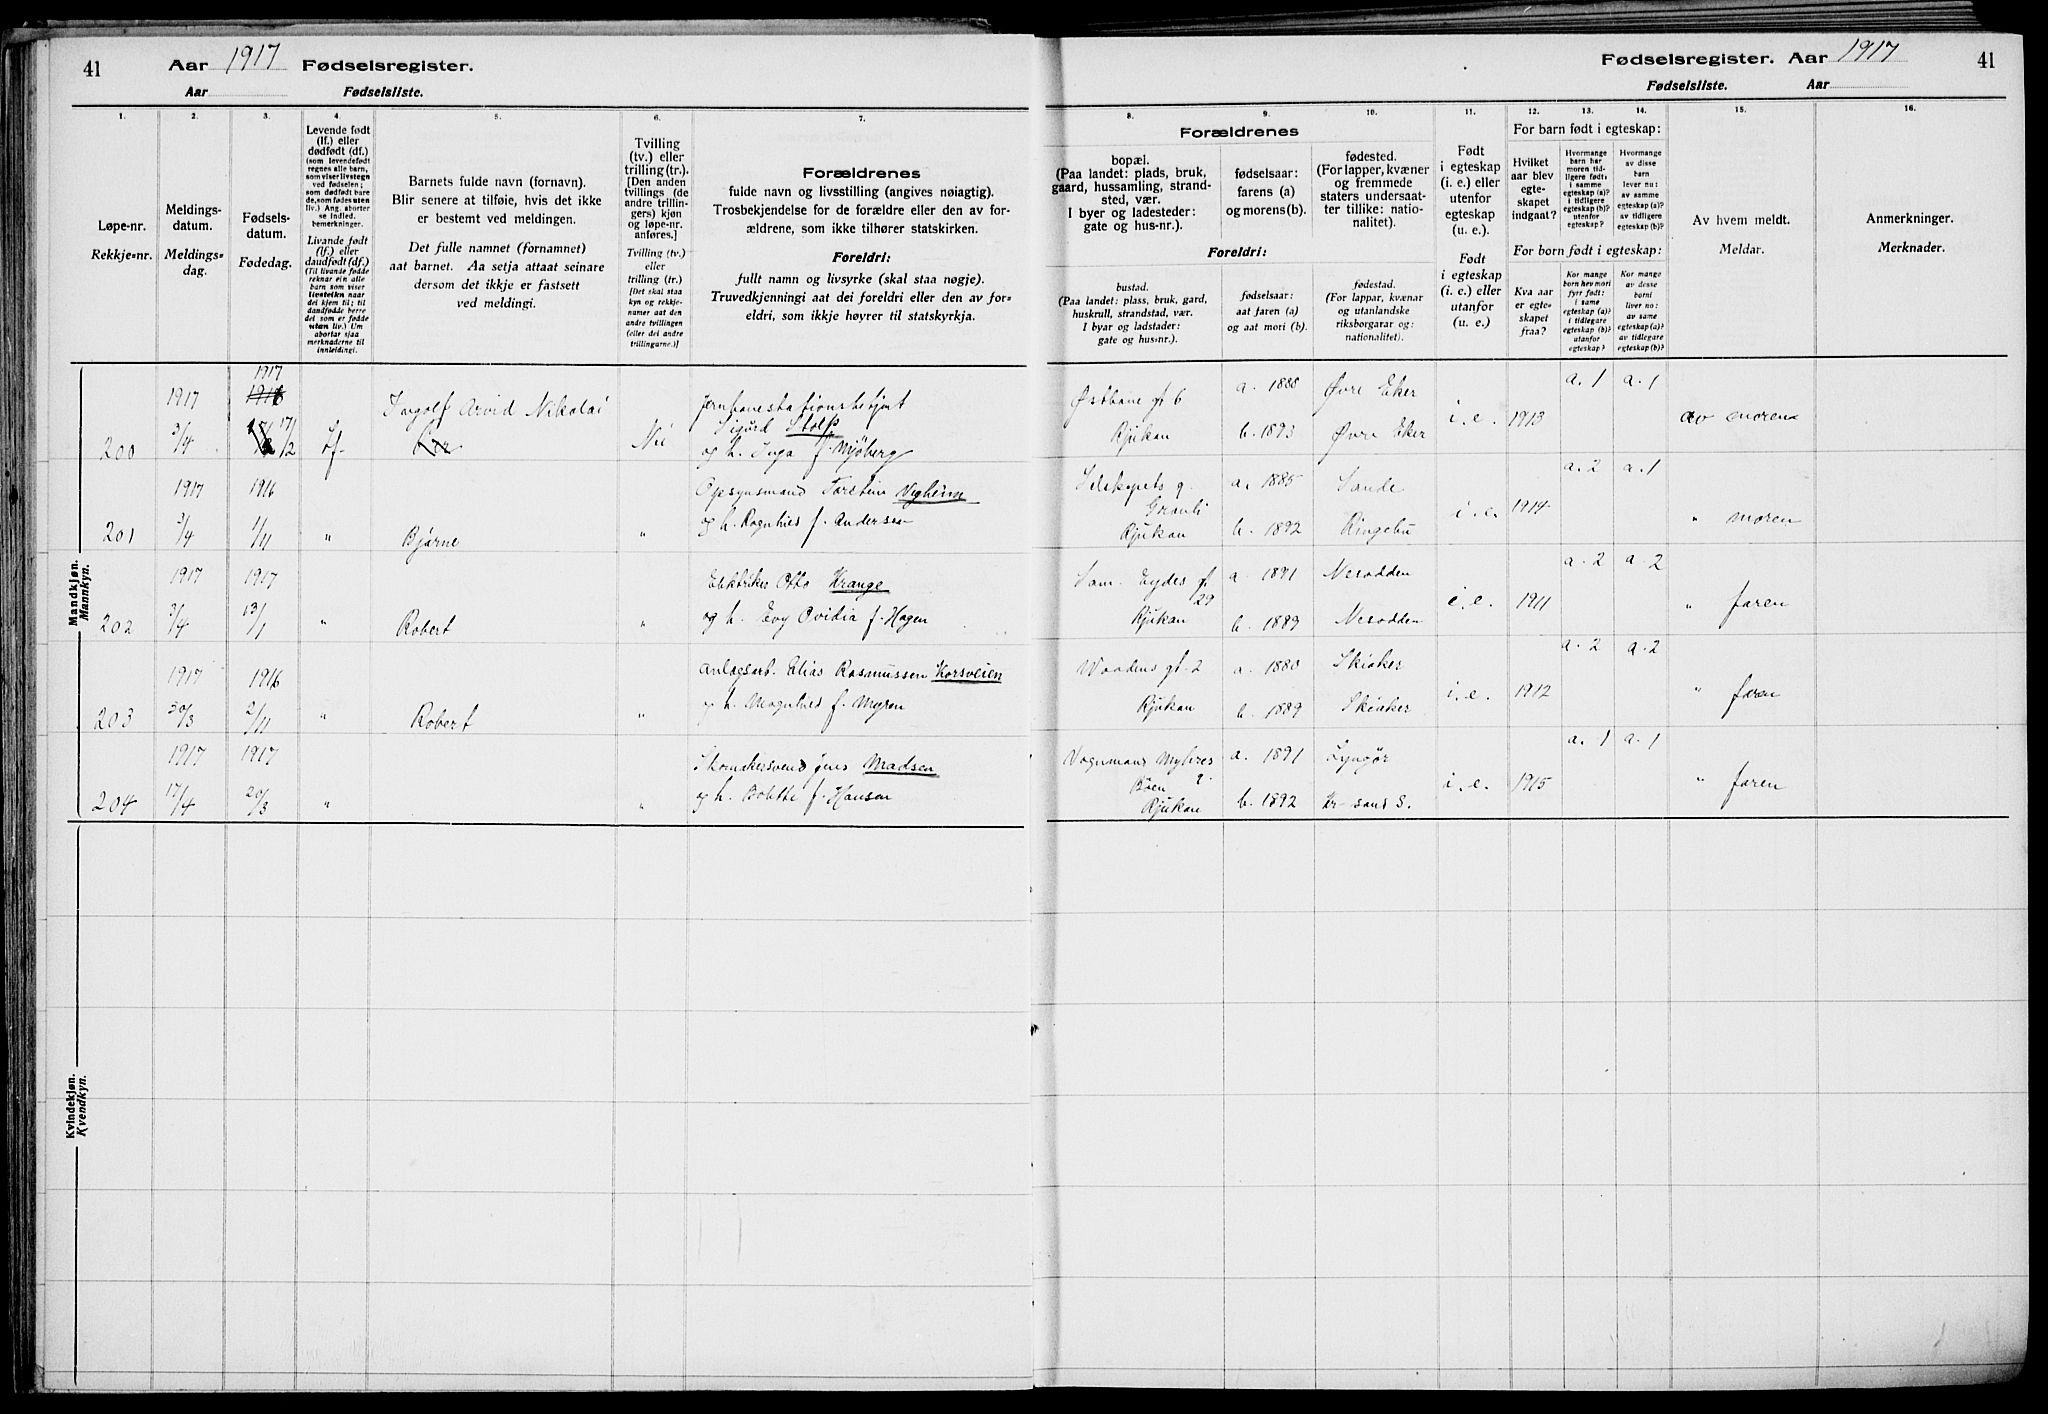 41 Aar 1917 Fødselsregister.
Aar Fødselsliste.
Fødselsregister. Aar 1917 41
Fødselsliste. Aar
1. 2. 3. 4. 5. 6. 7.
Løpe-nr.
Rekkje-nr.
Meldings-
datum.
Meldings-
dag.
Fødsels-
datum.
Fødedag.
Levende født
(lf.) eller
dødfødt (df.)
(som levendefødt
regnes alle barn,
som viser livstegn
ved fødselen;
som dødfødt bare
de, som fødes uten
liv.) Ang. aborter
se indled.
bemerkninger.
Livande født
(lf.) eller
daudfødt (df.)
(Til livande fødde
reknar ein alle
barn som viser
livsteikn naar
dei kjem til; til
daudfødde berre
dei som er fødde
utan liv.) Um
abortar sjaa
merknaderne til
innleidingi.
Barnets fulde navn (fornavn).
Blir senere at tilføie, hvis det ikke
er bestemt ved meldingen.
Det fulle namnet (fornamnet)
aat barnet. Aa setja attaat seinare
dersom det ikkje er fastsett
ved meldingi.
Tvilling
(tv.) eller
trilling (tr.).
[Den anden
tvillings (de
andre trillin-
gers) kjøn
og løpe-nr.
anføres.]
Tvilling (tv.)
eller
trilling (tr.)
[Det skal staa
kyn og rekkje-
numer aat den
andre tvillingen
(eller dei andre
trillingarne.)]
Forældrenes
fulde navn og livsstilling (angives nøiagtig).
Trosbekjendelse for de forældre eller den av for-
ældrene, som ikke tilhører statskirken.
Foreldri:
fullt namn og livsyrke (skal staa nøgje).
Truvedkjenningi aat dei foreldri eller den av for-
eldri, som ikkje høyrer til statskyrkja.
8. 9. 10. 11. 12. 13. 14. 15. 16.
Forældrenes
bopæl.
(Paa landet: plads, bruk,
gaard, hussamling, strand-
sted, vær.
I byer og ladesteder:
gate og hus-nr.).
fødselsaar:
farens (a)
og morens (b).
fødested.
(For lapper, kvæner
og fremmede
staters undersaat-
ter tillike: natio-
nalitet).
Foreldri:
bustad.
(Paa landet: plass, bruk, gard,
huskrull, strandstad, vær.
I byar og ladstader:
gate og hus-nr.).
fødselsaar:
aat faren (a)
og aat mori (b).
fødestad.
(For lappar, kvænar
og utanlandske
riksborgarar og:
nationalitet).
Født
i egteskap
(i. e.) eller
utenfor
egteskap
(u. e.).
Født
i egteskap
(i. e.) eller
utanfor
(u. e.).
For barn født i egteskap:
Hvilket
aar blev
egte-
skapet
indgaat?
Hvormange
barn har
moren tid-
ligere født:
i samme
egteskap (a)?
i tidligere
egteskap (b)?
utenfor
egteskap?
Hvormange
av disse
barn
lever nu:
av samme
egteskap (a)?
av tidligere
egteskap (b)?
For born født i egteskap:
Kva aar
er egte-
skapet
fraa?
Kor mange
born hev mori
fyrr født:
i same
egteskap (a)?
i tidlegare
egteskap (b)?
utanfor
egteskap?
Kor mange
av desse
borni
liver no:
av same
egteskap (a)?
av tidlegare
egteskap (b)?
Av hvem meldt.
Meldar.
Anmerkninger.
Merknader.
Mandkjøn.
Mannkyn.
1917 1917 Ingolf Arvid Nikolai Jernbanestationsbetjent
Sigurd Stolp
200 3/4 17/2 lf. Nei og h. Inga f. Mjøberg
Østbane gt 6 a. 1888 Øvre Eker i. e. 1913 a. 1 a. 1 av moren
Rjukan b. 1893 Øvre Eker
1917 1916 Opsynsmand Torstein Vigheim
201 3/4 1/11 " Bjarne " og h. Ragnhild f. Andersen
Selskapets g. a. 1885 Sande i. e. 1914 a. 2 a. 1 " moren
Granli
Rjukan b. 1892 Ringebu
1917 1917 Elektriker Otto Krange
202 3/4 13/1 " Robert " og h. Evy Ovidia f. Hagen
Sam. Eydes gt a. 1891 Nesodden i. e. 1911 a. 2 a. 2 " faren
29
Rjukan b. 1889 Nesodden
1917 1916 Anlægsarb. Elias Rasmussen Korsveien
203 30/3 2/11 " Robert " og h. Magnhild f. Myren
Waadens gt. 2 a. 1880 Skiaker i. e. 1912 a. 2 a. 2 " faren
Rjukan b. 1889 Skiaker
1917 1917 Skomakersvend Jens Madsen
204 17/4 20/3 " " og h. Bolette f. Hansen
Vognmand Myhres a. 1891 Lyngør i. e. 1915 a. 1 a. 1 " faren
Bøen g.
Rjukan b. 1892 Kr-sand S.
Kvindekjøn.
Kvendkyn.